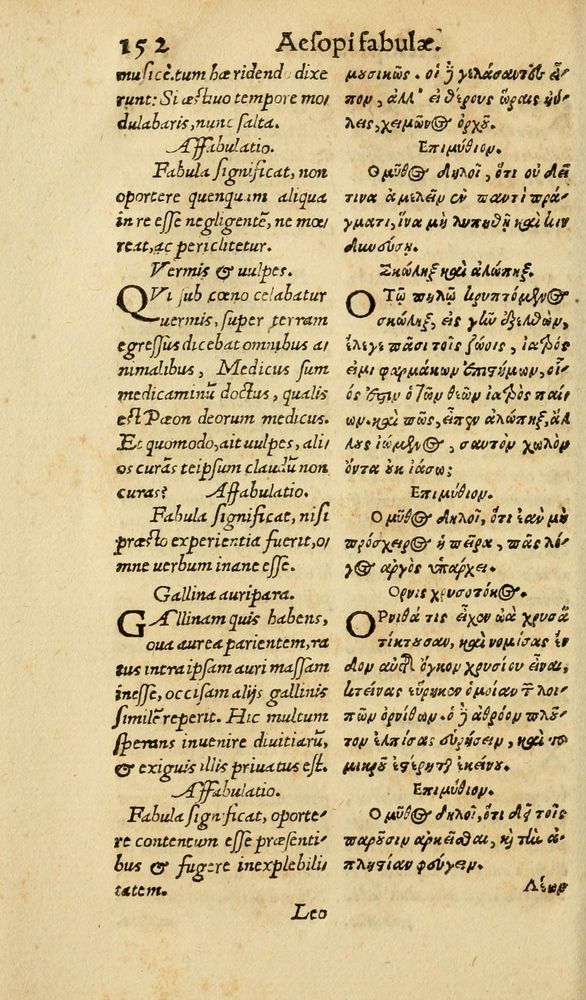 152 Aesopi fabulæ.
musicè. tum hæ ridendo dixe
runt: Si æstiuo tempore mo/
dulabaris, nunc salta.
Affabulatio.
Fabula significat, non
oportere quenquam aliqua
in re esse negligentẽ, ne mœ
reat, ac periclitetur.
Vermis & uulpes.
QVi sub cœno celabatur
uermis, super terram
egressus dicebat omnibus a/
nimalibus, Medicus sum
medicaminũ doctus, qualis
est Pæon deorum medicus.
Et quomodo, ait uulpes, ali/
os curãs teipsum claudũ non
curas? Affabulatio.
Fabula significat, nisi
præsto experientia fuerit, o/
mne uerbum inane esse.
Gallina auripara.
GAllinam quis habens,
oua aurea parientem, ra
tus intra ipsam auri massam
inesse, occisam alijs gallinis
similẽ reperit. Hic multum
sperans inuenire diuitiarũ,
& exiguis illis priuatus est.
Affabulatio.
Fabula significat, oporte/
re contentum esse præsenti/
bus & fugere inexplebili
tatem.
Leo
μυσικῶς. οἱ ἢ γελάσαντες εἶ/
πον, ἀλλ' εἰ θέρους ὥραις ηὔ/
λεις, χειμῶνος ὀρχοῦ.
Επιμύθιον.
Ο μῦθος δηλοῖ, ὅτι οὐ δεῖ
τινα ἀμελεῖν ἐν παντὶ πρά/
γματι, ἵνα μὴ λυπηθῇ καὶ κιν
δυνεύσῃ.
Σκώληξ καὶ ἀλώπηξ.
Ο Τῷ πηλῷ κρυπτόμενος
σκώληξ, εἰς γῆν ἐξελθὼν,
ἔλεγε πᾶσι τοῖς ζώοις, ἰατρός
εἰμι φαρμάκων ἐπιστήμων, οἷ/
ός ἐστιν ὁ τῶν θεῶν ἰατρὸς παιή
ων. καὶ πῶς, εἶπεν ἀλώπηξ, ἄλ/
λους ἰώμενος, σαυτὸν χωλὸν
ὄντα οὐκ ἰάσω;
Επιμύθιον.
Ο μῦθος δηλοῖ, ὅτι ἐὰν μὴ
πρόχειρος ἡ πεῖρα, πᾶς λό/
γος ἀργὸς ὑπάρχει.
Ορνις χρυσοτόκος.
ΟΡνιθά τις εἶχεν ὠὰ χρυσᾶ
τίκτουσαν, καὶ νομίσας ἔν
δον αὐτῆς ὄγκον χρυσίου εἶναι,
κτείνας εὕρηκεν ὁμοίαν τῶν λοι/
πῶν ὀρνίθων. ὁ ἢ ἀθρόον πλοῦ/
τον ἐλπίσας εὑρήσειν, καὶ τοῦ
μικροῦ ἐστέρηται ἐκείνου.
Επιμύθιον.
Ο μῦθος δηλοῖ, ὅτι δεῖ τοῖς
παροῦσιν ἀρκεῖσθαι, καὶ τὴν ἀ/
πληστίαν φεύγειν.
Λέων